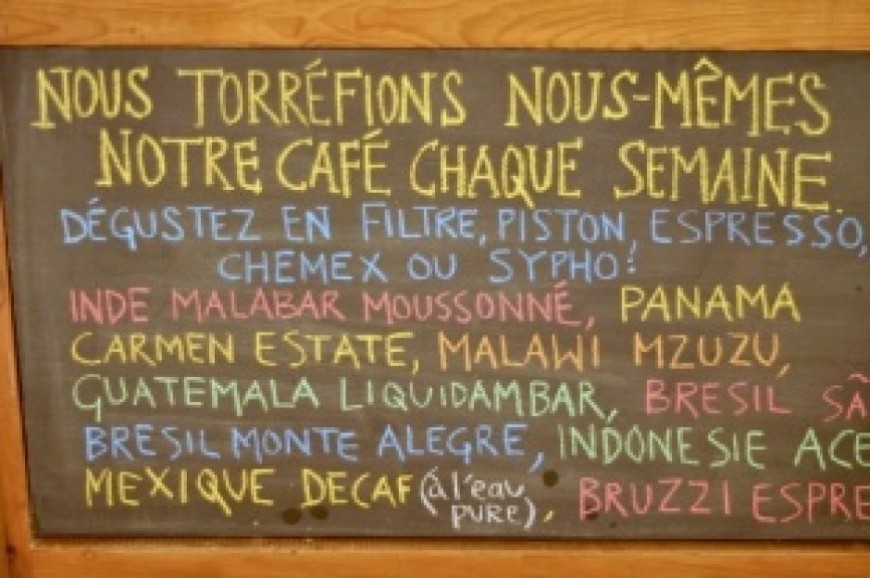 NOUS TORRÉFIONS NOUS-MÊMES
NOTRE CAFÉ CHAQUE SEMAINE
DÉGUSTEZ EN FILTRE, PISTON, ESPRESSO,
CHEMEX OU SYPHO!
INDE MALABAR MOUSSONNÉ, PANAMA
CARMEN ESTATE, MALAWI MZUZU,
GUATEMALA LIQUIDAMBAR, BRESIL SÃ
BRESIL MONTE ALEGRE, INDONESIE ACE
MEXIQUE DECAF (à l'eau
pure), BRUZZI ESPRE